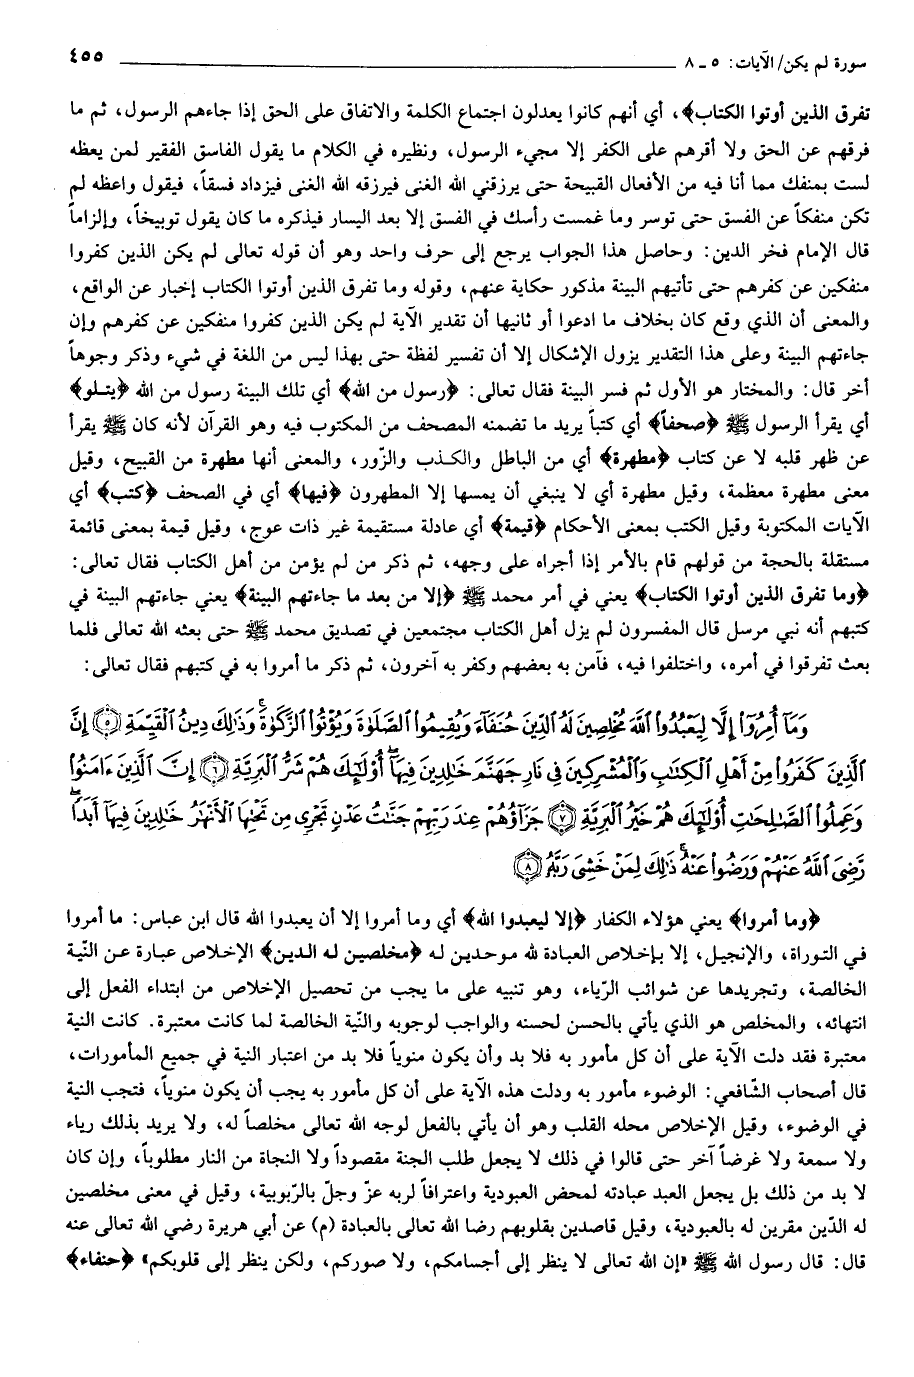 سورة لم يكن/ الآيات: ٥ ـ ٨ ٤٥٥
تفرق الذين أوتوا الكتاب﴾، أي أنهم كانوا يعدلون اجتماع الكلمة والاتفاق على الحق إذا جاءهم الرسول، ثم ما
فرقهم عن الحق ولا أقرهم على الكفر إلا مجيء الرسول، ونظيره في الكلام ما يقول الفاسق الفقير لمن يعظه
لست بمنفك مما أنا فيه من الأفعال القبيحة حتى يرزقني الله الغنى فيرزقه الله الغنى فيزداد فسقاً، فيقول واعظه لم
تكن منفكاً عن الفسق حتى توسر وما غمست رأسك في الفسق إلا بعد اليسار فيذكره ما كان يقول توبيخاً، وإلزاماً
قال الإمام فخر الدين: وحاصل هذا الجواب يرجع إلى حرف واحد وهو أن قوله تعالى لم يكن الذين كفروا
منفكين عن كفرهم حتى تأتيهم البينة مذكور حكاية عنهم، وقوله وما تفرق الذين أوتوا الكتاب إخبار عن الواقع،
والمعنى أن الذي وقع كان بخلاف ما ادعوا أو ثانيها أن تقدير الآية لم يكن الذين كفروا منفكين عن كفرهم وإن
جاءتهم البينة وعلى هذا التقدير يزول الإشكال إلا أن تفسير لفظة حتى بهذا ليس من اللغة في شيء وذكر وجوهاً
أخر قال: والمختار هو الأول ثم فسر البينة فقال تعالى: ﴿رسول من الله﴾ أي تلك البينة رسول من الله ﴿يتلو﴾
أي يقرأ الرسول ﷺ ﴿صحفاً﴾ أي كتباً يريد ما تضمنه المصحف من المكتوب فيه وهو القرآن لأنه كان ﷺ يقرأ
عن ظهر قلبه لا عن كتاب ﴿مطهرة﴾ أي من الباطل والكذب والزّور، والمعنى أنها مطهرة من القبيح، وقيل
معنى مطهرة معظمة، وقيل مطهرة أي لا ينبغي أن يمسها إلا المطهرون ﴿فيها﴾ أي في الصحف ﴿كتب﴾ أي
الآيات المكتوبة وقيل الكتب بمعنى الأحكام ﴿قيمة﴾ أي عادلة مستقيمة غير ذات عوج، وقيل قيمة بمعنى قائمة
مستقلة بالحجة من قولهم قام بالأمر إذا أجراه على وجهه، ثم ذكر من لم يؤمن من أهل الكتاب فقال تعالى:
﴿وما تفرق الذين أوتوا الكتاب﴾ يعني في أمر محمد ﷺ ﴿إلا من بعد ما جاءتهم البينة﴾ يعني جاءتهم البينة في
كتبهم أنه نبي مرسل قال المفسرون لم يزل أهل الكتاب مجتمعين في تصديق محمد ﷺ حتى بعثه الله تعالى فلما
بعث تفرقوا في أمره، واختلفوا فيه، فآمن به بعضهم وكفر به آخرون، ثم ذكر ما أمروا به في كتبهم فقال تعالى:
وَمَآ أُمِرُوٓا۟ إِلَّا لِيَعْبُدُوا۟ ٱللَّهَ مُخْلِصِينَ لَهُ ٱلدِّينَ حُنَفَآءَ وَيُقِيمُوا۟ ٱلصَّلَوٰةَ وَيُؤْتُوا۟ ٱلزَّكَوٰةَ ۚ وَذَٰلِكَ دِينُ ٱلْقَيِّمَةِ ۝٥ إِنَّ
ٱلَّذِينَ كَفَرُوا۟ مِنْ أَهْلِ ٱلْكِتَٰبِ وَٱلْمُشْرِكِينَ فِى نَارِ جَهَنَّمَ خَٰلِدِينَ فِيهَآ ۚ أُو۟لَٰٓئِكَ هُمْ شَرُّ ٱلْبَرِيَّةِ ۝٦ إِنَّ ٱلَّذِينَ ءَامَنُوا۟
وَعَمِلُوا۟ ٱلصَّٰلِحَٰتِ أُو۟لَٰٓئِكَ هُمْ خَيْرُ ٱلْبَرِيَّةِ ۝٧ جَزَآؤُهُمْ عِندَ رَبِّهِمْ جَنَّٰتُ عَدْنٍ تَجْرِى مِن تَحْتِهَا ٱلْأَنْهَٰرُ خَٰلِدِينَ فِيهَآ أَبَدًا ۖ
رَّضِىَ ٱللَّهُ عَنْهُمْ وَرَضُوا۟ عَنْهُ ۚ ذَٰلِكَ لِمَنْ خَشِىَ رَبَّهُۥ ۝٨
﴿وما أمروا﴾ يعني هؤلاء الكفار ﴿إلا ليعبدوا الله﴾ أي وما أمروا إلا أن يعبدوا الله قال ابن عباس: ما أمروا
في التوراة، والإنجيل، إلا بإخلاص العبادة لله موحدين له ﴿مخلصين له الدين﴾ الإخلاص عبارة عن النّية
الخالصة، وتجريدها عن شوائب الرّياء، وهو تنبيه على ما يجب من تحصيل الإخلاص من ابتداء الفعل إلى
انتهائه، والمخلص هو الذي يأتي بالحسن لحسنه والواجب لوجوبه والنّية الخالصة لما كانت معتبرة. كانت النية
معتبرة فقد دلت الآية على أن كل مأمور به فلا بد وأن يكون منوياً فلا بد من اعتبار النية في جميع المأمورات،
قال أصحاب الشّافعي: الوضوء مأمور به ودلت هذه الآية على أن كل مأمور به يجب أن يكون منوياً، فتجب النية
في الوضوء، وقيل الإخلاص محله القلب وهو أن يأتي بالفعل لوجه الله تعالى مخلصاً له، ولا يريد بذلك رياء
ولا سمعة ولا غرضاً آخر حتى قالوا في ذلك لا يجعل طلب الجنة مقصوداً ولا النجاة من النار مطلوباً، وإن كان
لا بد من ذلك بل يجعل العبد عبادته لمحض العبودية واعترافاً لربه عزّ وجلّ بالرّبوبية، وقيل في معنى مخلصين
له الدّين مقرين له بالعبودية، وقيل قاصدين بقلوبهم رضا الله تعالى بالعبادة (م) عن أبي هريرة رضي الله تعالى عنه
قال: قال رسول الله ﷺ «إن الله تعالى لا ينظر إلى أجسامكم، ولا صوركم، ولكن ينظر إلى قلوبكم» ﴿حنفاء﴾